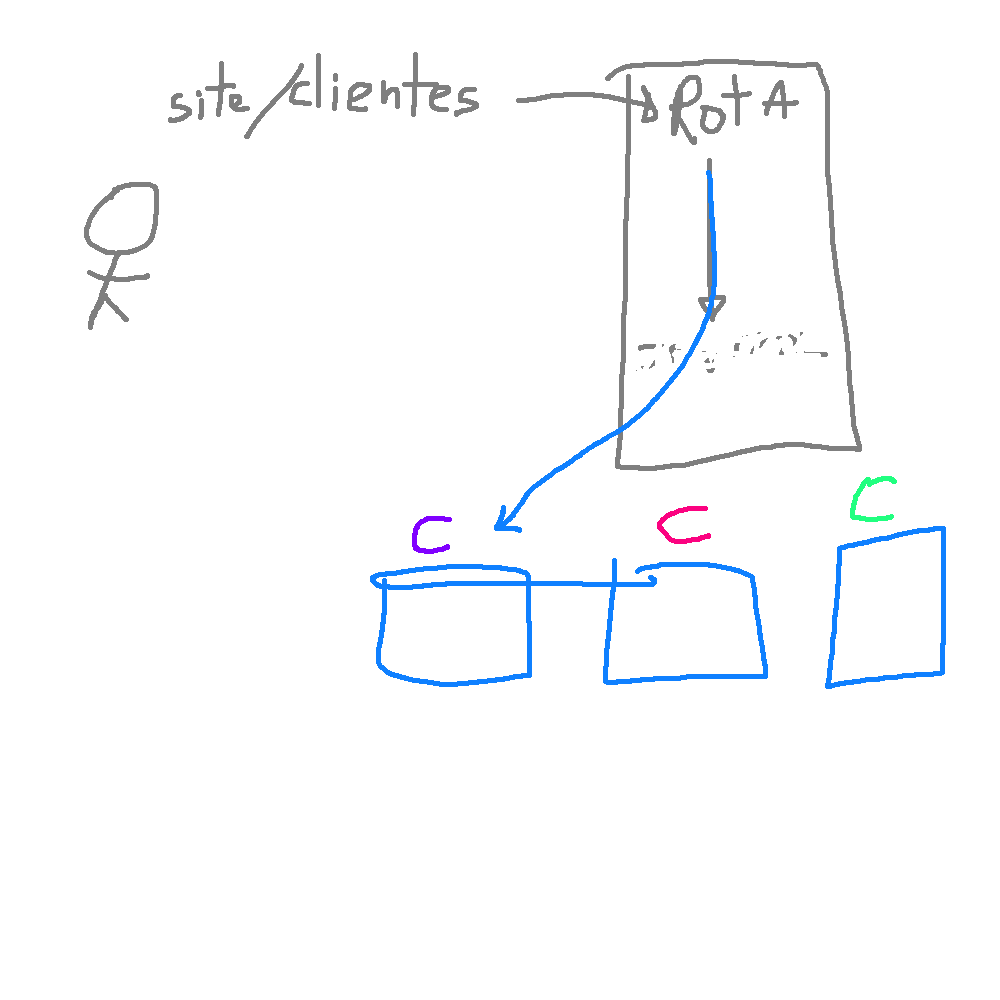 site/clientes
RotA
C
C
C